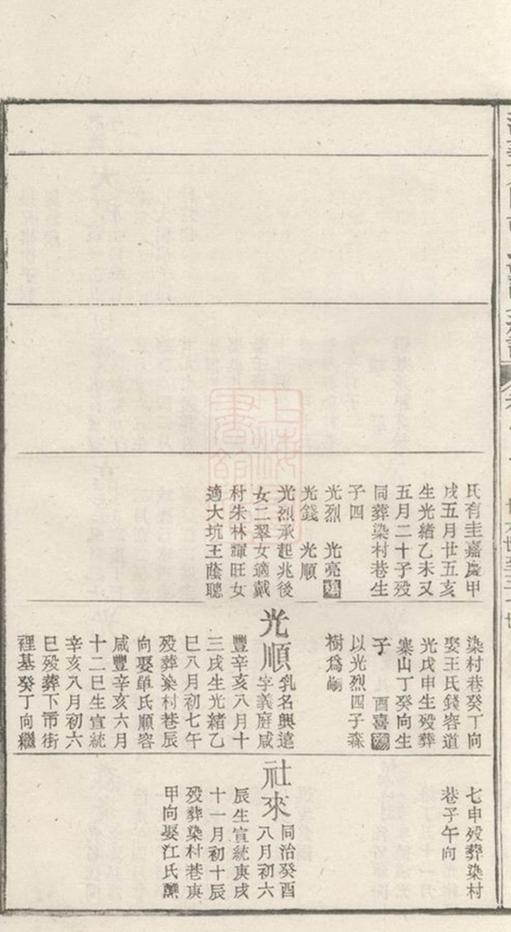 氏有圭嘉慶甲
戌五月廿五亥
生光緒乙未又
五月二十子歿
同葬染村巷生
子四
光烈 光亮殤
光錢 光順
光烈承起兆後
女二翠女適戴
村朱林輝旺女
適大坑王蔭聰
染村巷癸丁向
娶王氏錢容道
光戊申生歿葬
寨山丁癸向生
子 酉喜殤
以光烈四子森
樹爲嗣
光順 乳名興達
字義庭咸
豐辛亥八月十
三戌生光緒乙
巳八月初七午
歿葬染村巷辰
向娶單氏順容
咸豐辛亥六月
十二巳生宣統
辛亥八月初六
巳歿葬下荷街
裡基癸丁向繼
七申歿葬染村
巷子午向
社來 同治癸酉
八月初六
辰生宣統庚戌
十一月初十辰
歿葬染村巷庚
甲向娶江氏
上海圖書館